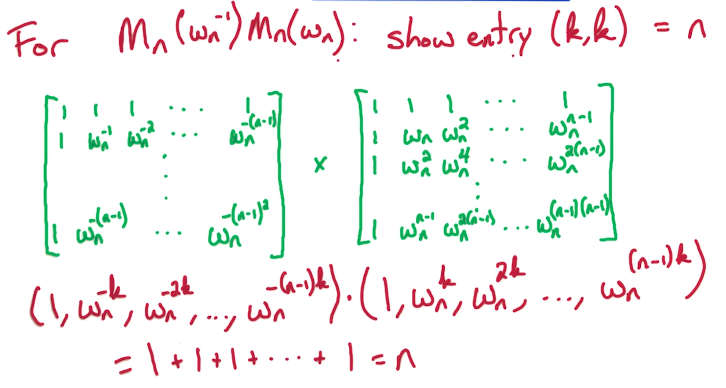 For Mₙ(ωₙ⁻¹)Mₙ(ωₙ): show entry (k,k) = n
[ 1 1 1 ⋯ 1 ] [ 1 1 1 ⋯ 1 ]
[ 1 ωₙ^{-1} ωₙ^{-2} ⋯ ωₙ^{-(n-1)} ] × [ 1 ωₙ ωₙ^{2} ⋯ ωₙ^{n-1} ]
⋮ [ 1 ωₙ^{2} ωₙ^{4} ⋯ ωₙ^{2(n-1)} ]
⋮
[ 1 ωₙ^{-(n-1)} ⋯ ωₙ^{-(n-1)^2} ] [ 1 ωₙ^{n-1} ωₙ^{2(n-1)} ⋯ ωₙ^{(n-1)(n-1)} ]
(1, ωₙ^{-k}, ωₙ^{-2k}, ..., ωₙ^{-(n-1)k}) · (1, ωₙ^{k}, ωₙ^{2k}, ..., ωₙ^{(n-1)k})
= 1 + 1 + 1 + ⋯ + 1 = n